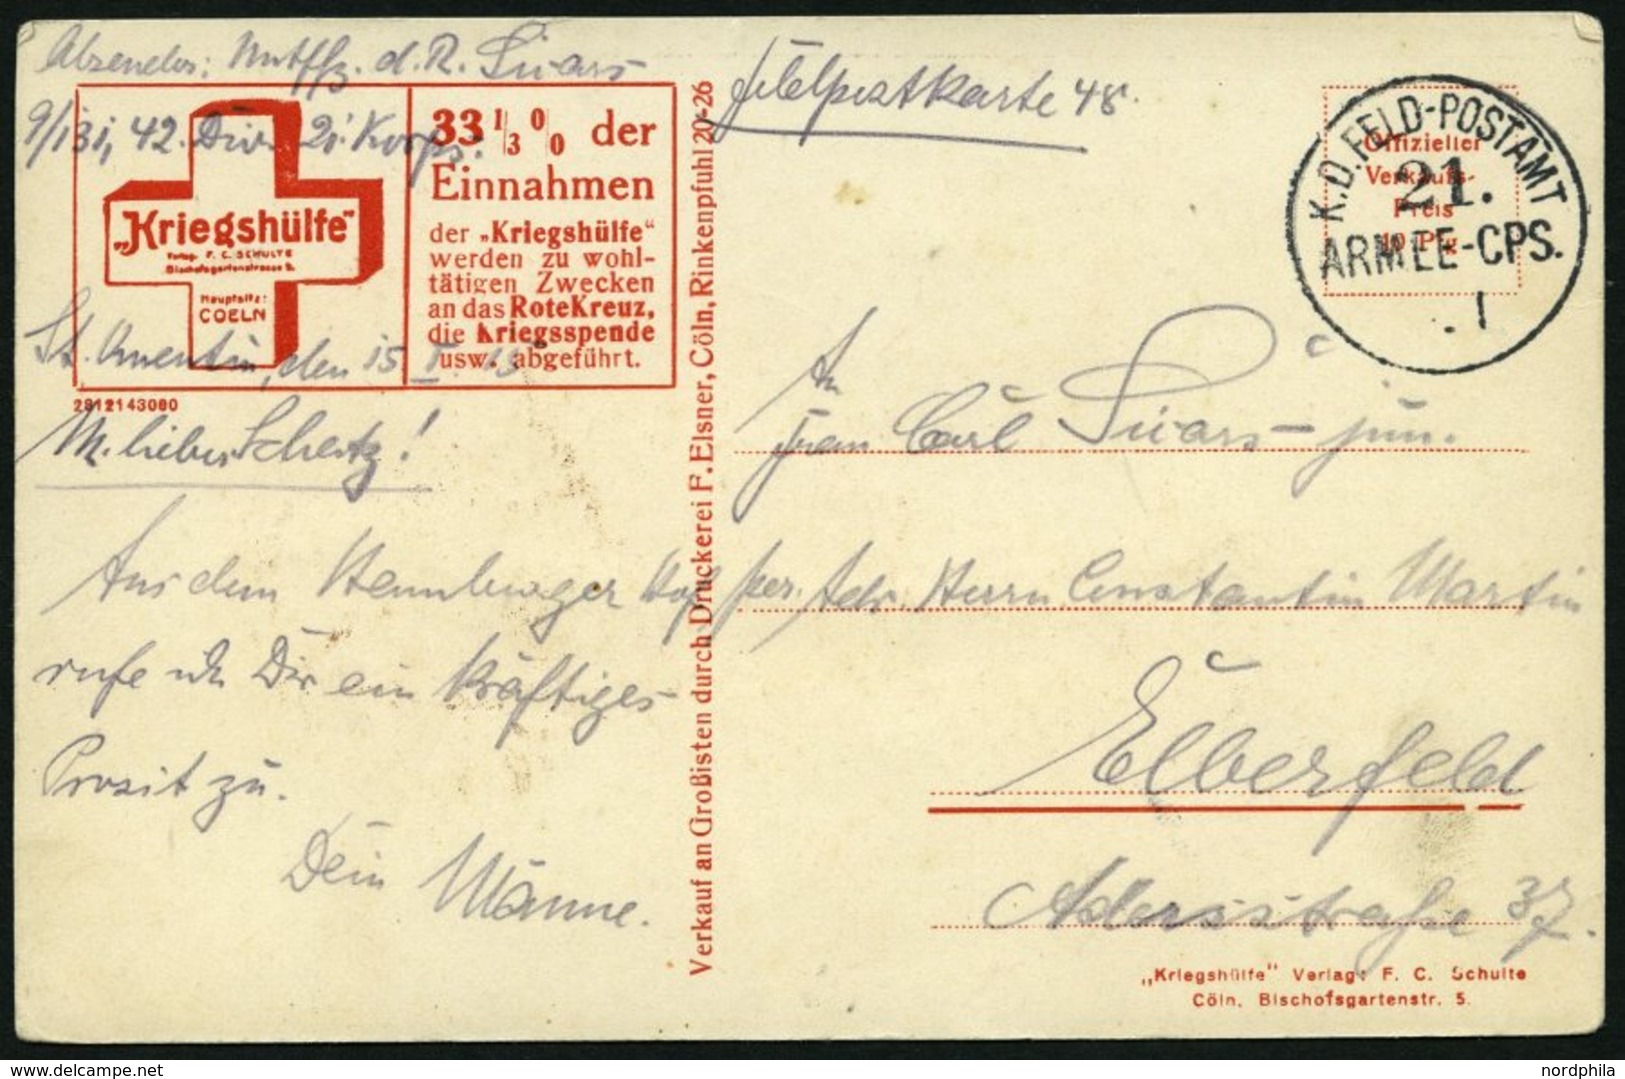 Absender: Untffz. d. R. Siiars
9/131, 42. Div. 21. Korps.
Feldpostkarte 48.
"Kriegshülfe"
Verlag: F. C. SCHULTE
Bischofsgartenstrasse 5.
Hauptsitz:
COELN
33 1/3 0/0 der
Einnahmen
der „Kriegshülfe“
werden zu wohl-
tätigen Zwecken
an das Rote Kreuz,
die Kriegsspende
usw. abgeführt.
2812143080
St. Quentin, den 15. I. 15
M. lieber Schatz!
Aus dem Hennberger Hof
rufe ich Dir ein kräftiges
Prosit zu.
Dein Männe.
Verkauf an Großisten durch Druckerei F. Elsner, Cöln, Rinkenpfuhl 20-26
Offizieller
Verkaufs-
Preis
10 Pfg.
K.D. FELD-POSTAMT
21.
ARMEE-CPS.
An
Frau Carl jun.
per. Adr. Herrn Constantin Martin
Elberfeld
Adersstraße 37.
„Kriegshülfe“ Verlag: F. C. Schulte
Cöln, Bischofsgartenstr. 5.
nordphila